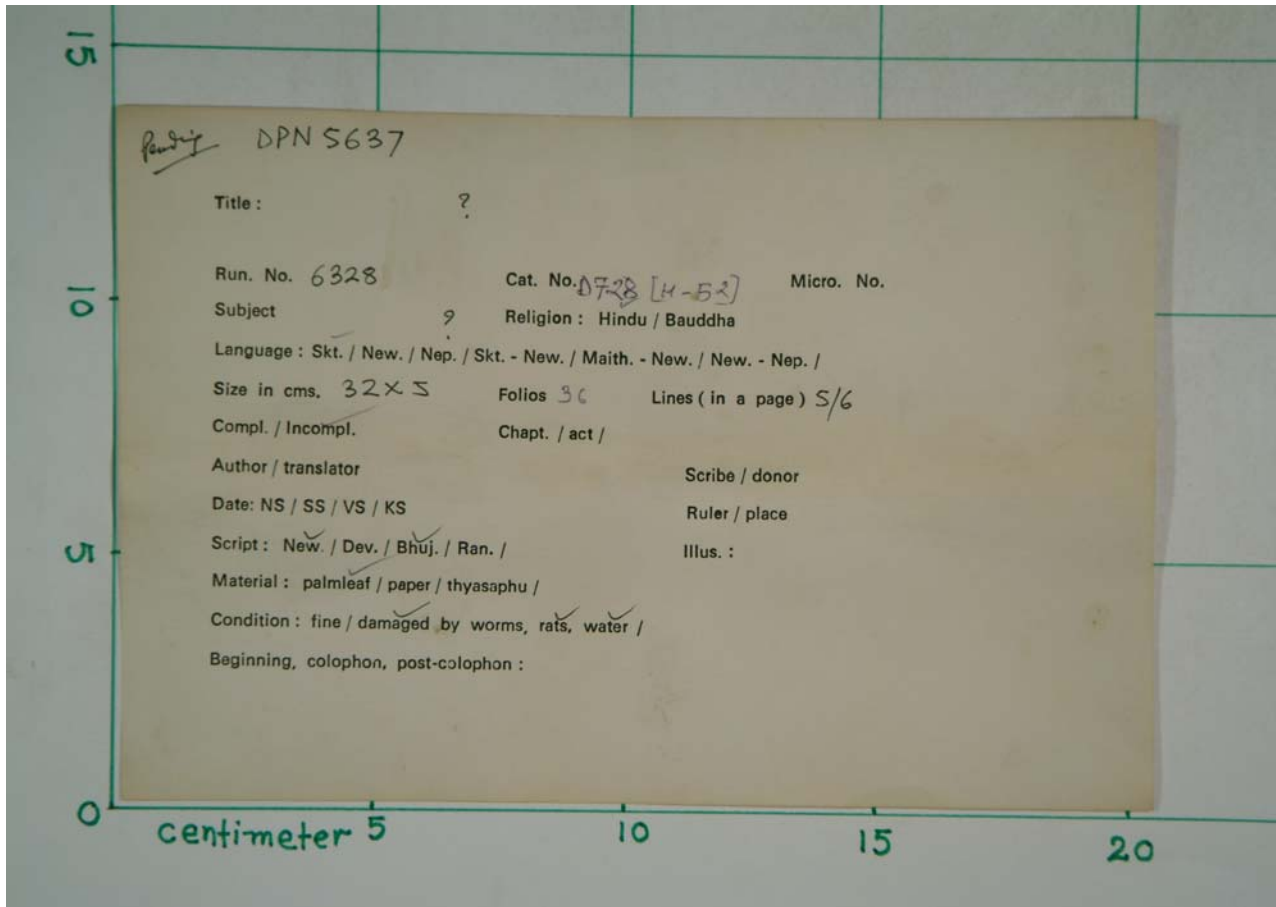 15
Pending DPN 5637
Title : ?
Run. No. 6328 Cat. No. D728 [H-52] Micro. No.
10
Subject ? Religion : Hindu / Bauddha
Language : Skt. / New. / Nep. / Skt. - New. / Maith. - New. / New. - Nep. /
Size in cms. 32 × 5 Folios 36 Lines ( in a page ) 5/6
Compl. / Incompl. Chapt. / act /
Author / translator Scribe / donor
Date: NS / SS / VS / KS Ruler / place
5
Script : New. / Dev. / Bhuj. / Ran. / Illus. :
Material : palmleaf / paper / thyasaphu /
Condition : fine / damaged by worms, rats, water /
Beginning, colophon, post-colophon :
0
centimeter 5 10 15 20